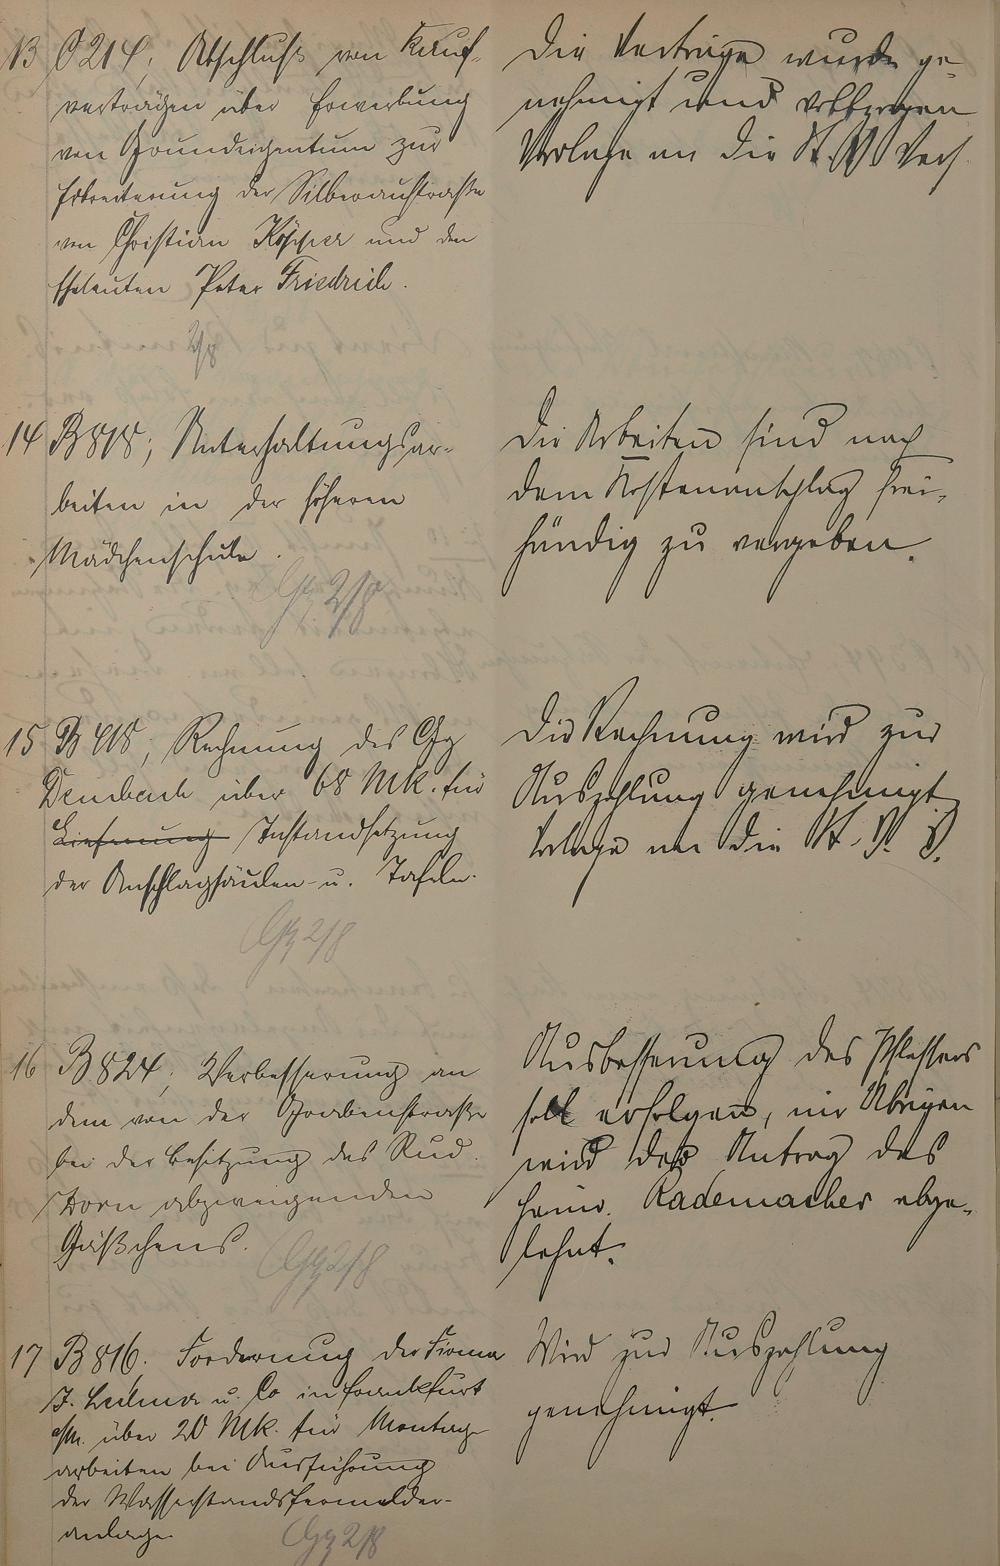 13 C 214; Abschluß von Kauf-
verträgen über Erwerbung
von Grundeigentum zur
Erbreiterung der Silberaustraße
von Christian Köpper und den
Eheleuten Peter Friedrich.
2/8
Die Verträge wurde ge-
nehmigt und
Vorlage an die St. V. Vers.
14 B 818; Unterhaltungsar-
beiten in der höheren
Mädchenschule.
2/8
Die Arbeiten sind nach
dem Kostenanschlag frei-
händig zu vergeben.
15 B 418; Rechnung des Gg
Dembach über 68 Mk. für
Lieferung Instandsetzung
der Anschlagsäulen u. Tafeln.
2/8
Die Rechnung wird zur
Auszahlung genehmigt
Vorlage an die St. V. V.
16 B 824; Verbesserung an
dem von der Grabenstraße
bei der Besitzung des Rud.
Dorn abzweigenden
Gäßchens.
2/8
Ausbesserung des Pflasters
soll erfolgen, im Übrigen
wird der Antrag des
Heinr. Rademacher abge-
lehnt.
17 B 816. Forderung der Firma
J. u. Co in Frankfurt
a/M. über 20 Mk. für Montage
arbeiten bei Ausführung
der Wasserstandsfernmelder-
anlage.
2/8
Wird zur Auszahlung
genehmigt.